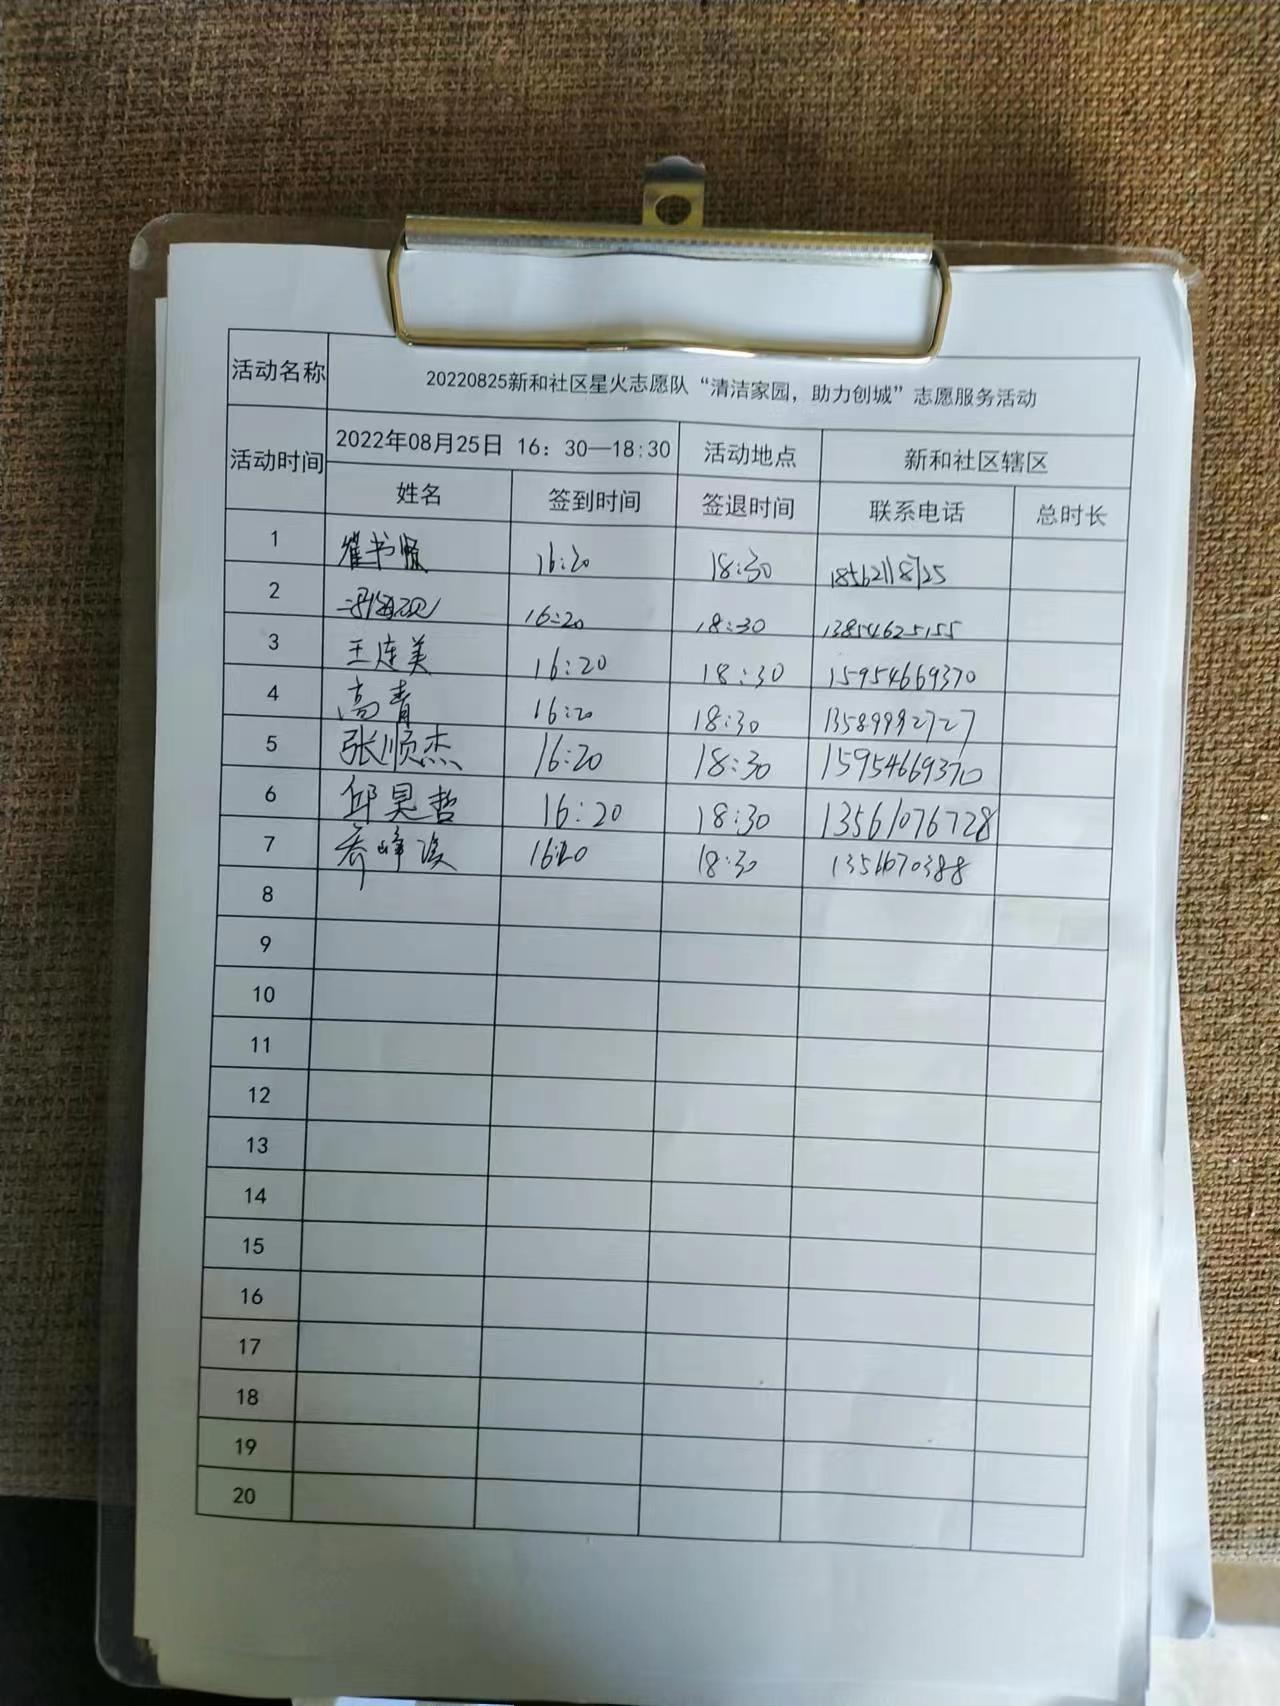 活动名称 20220825新和社区星火志愿队“清洁家园，助力创城”志愿服务活动
活动时间 2022年08月25日 16：30—18:30 活动地点 新和社区辖区
姓名 签到时间 签退时间 联系电话 总时长
1 崔书 16:20 18:30 18562118725
2 16:20 18:30 13854625155
3 王连美 16:20 18:30 15954669370
4 高青 16:20 18:30 13589992727
5 张顺杰 16:20 18:30 15954669370
6 邱昊哲 16:20 18:30 13561076728
7 乔峰 16:20 18:30
8
9
10
11
12
13
14
15
16
17
18
19
20